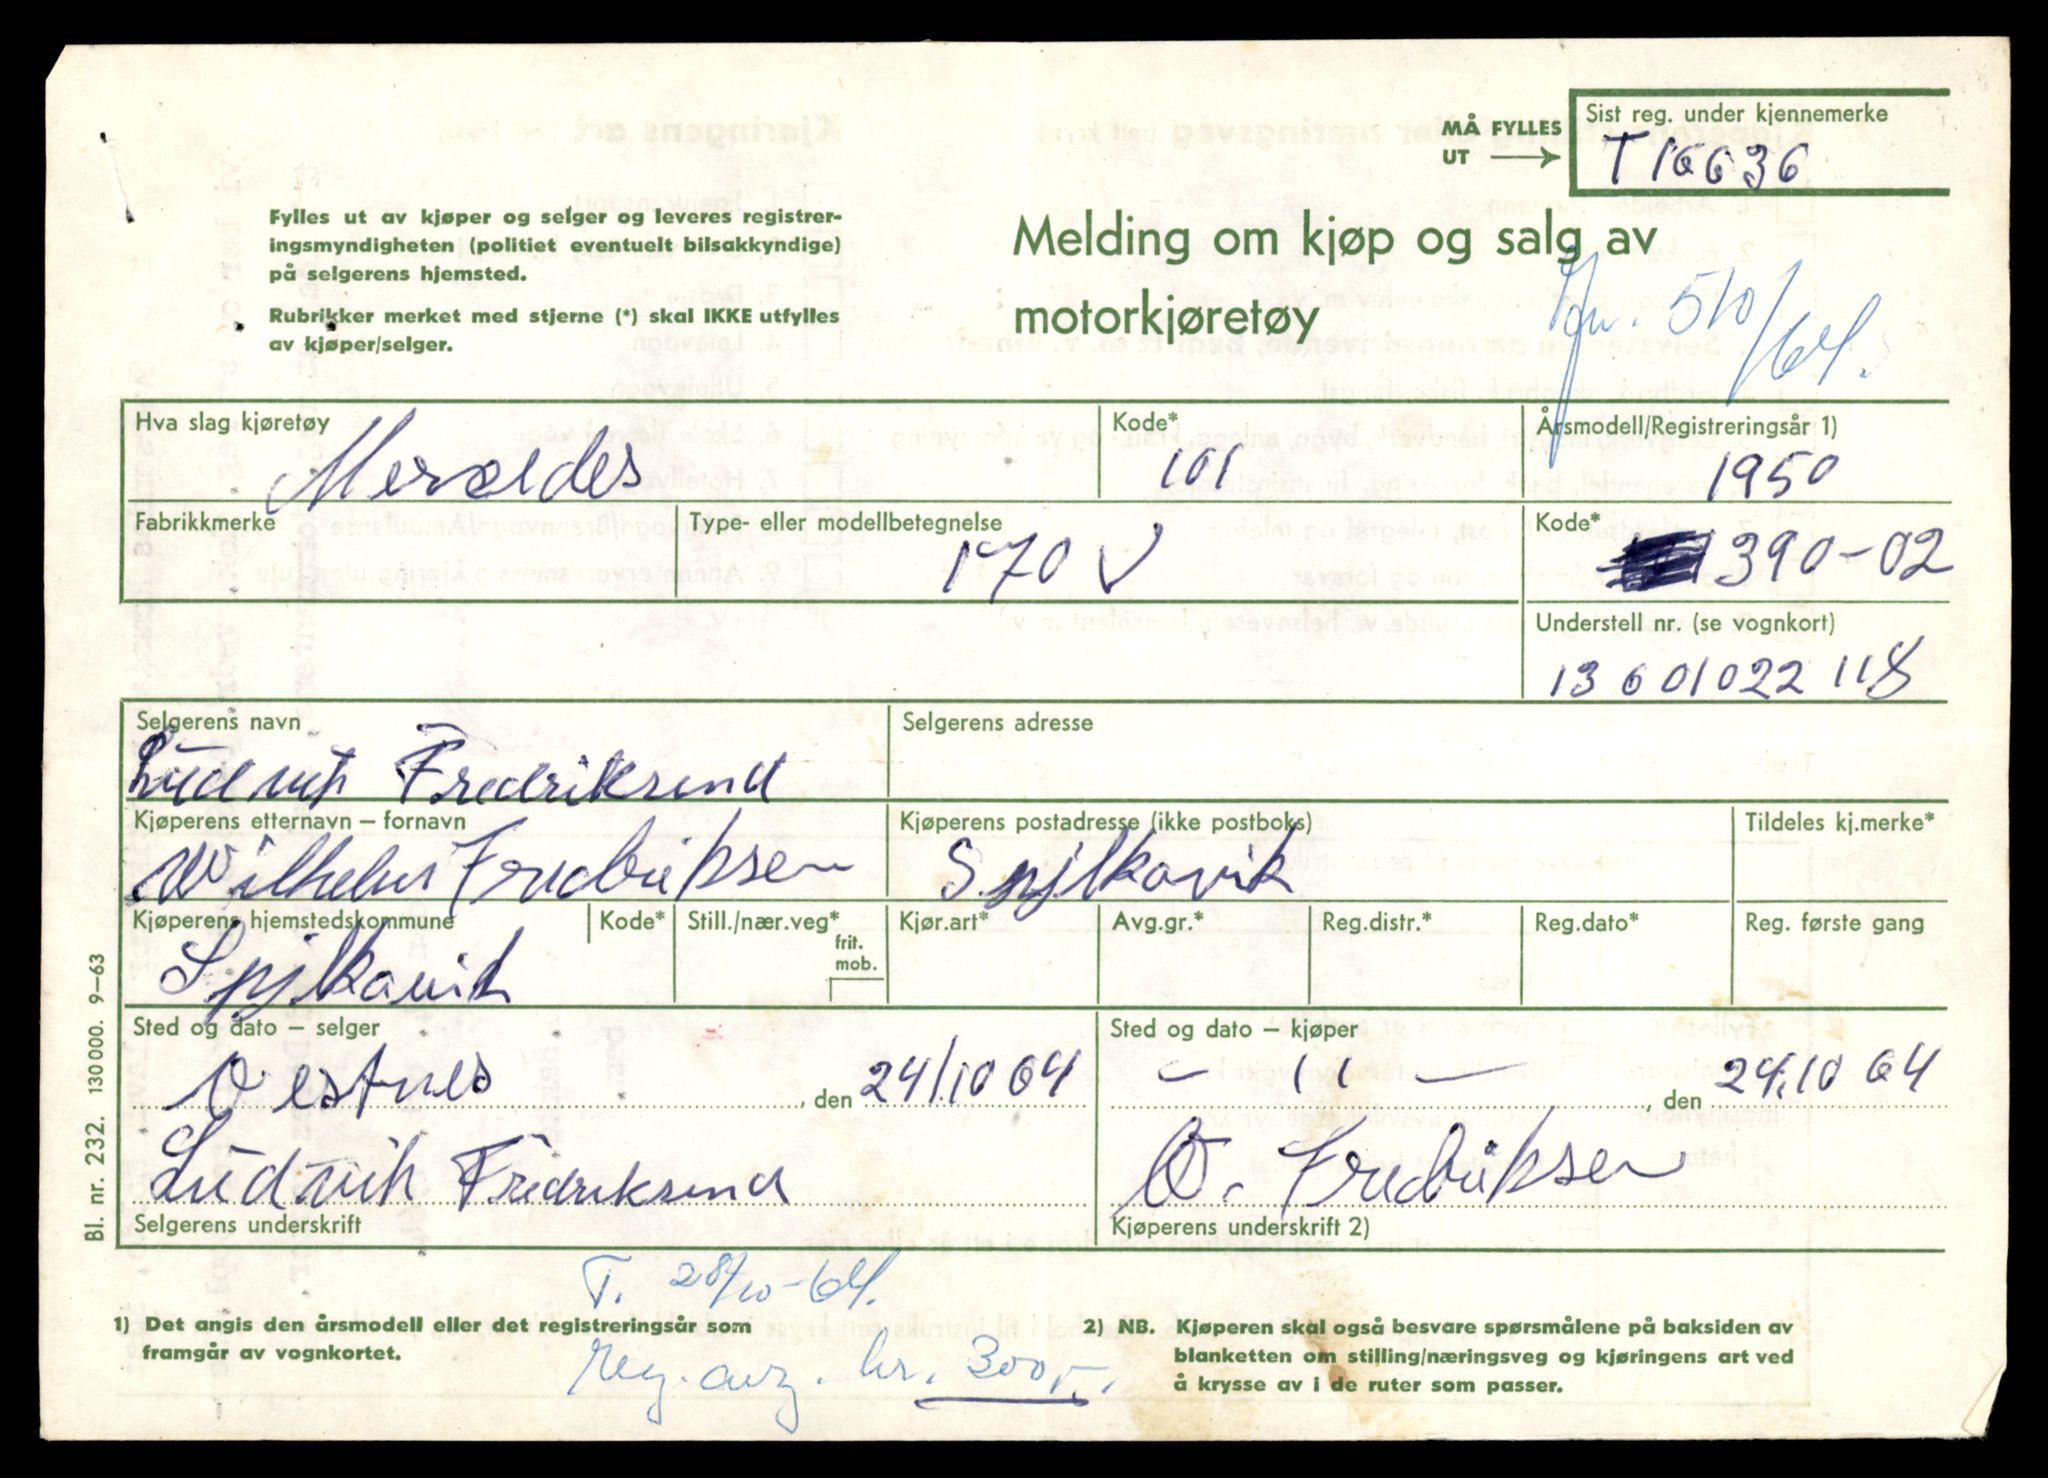 MÅ FYLLES
UT
Sist reg. under kjennemerke
T 16636
Fylles ut av kjøper og selger og leveres registrer-
ingsmyndigheten (politiet eventuelt bilsakkyndige)
på selgerens hjemsted.
Rubrikker merket med stjerne (*) skal IKKE utfylles
av kjøper/selger.
Melding om kjøp og salg av
motorkjøretøy
510/64.
Hva slag kjøretøy
Mercedes
Kode*
101
Årsmodell/Registreringsår 1)
1950
Fabrikkmerke
Type- eller modellbetegnelse
170 V
Kode*
390-02
Understell nr. (se vognkort)
13601022 118
Selgerens navn
Ludvik Fredriksend
Selgerens adresse
Kjøperens etternavn – fornavn
Wilhelm Fredriksen
Kjøperens postadresse (ikke postboks)
Spjlkavik
Tildeles kj.merke*
Kjøperens hjemstedskommune
Spjlkavik
Kode*
Still./nær.veg*
frit.
mob.
Kjør.art*
Avg.gr.*
Reg.distr.*
Reg.dato*
Reg. første gang
Sted og dato – selger
Vestnes , den 24/10 64
Sted og dato – kjøper
— 11 — , den 24.10 64
Ludvik Fredriksend
Selgerens underskrift
W. Fredriksen
Kjøperens underskrift 2)
Bl. nr. 232. 130 000. 9–63
T. 28/10-64.
Reg. avg. kr. 300,-.
1) Det angis den årsmodell eller det registreringsår som
framgår av vognkortet.
2) NB. Kjøperen skal også besvare spørsmålene på baksiden av
blanketten om stilling/næringsveg og kjøringens art ved
å krysse av i de ruter som passer.